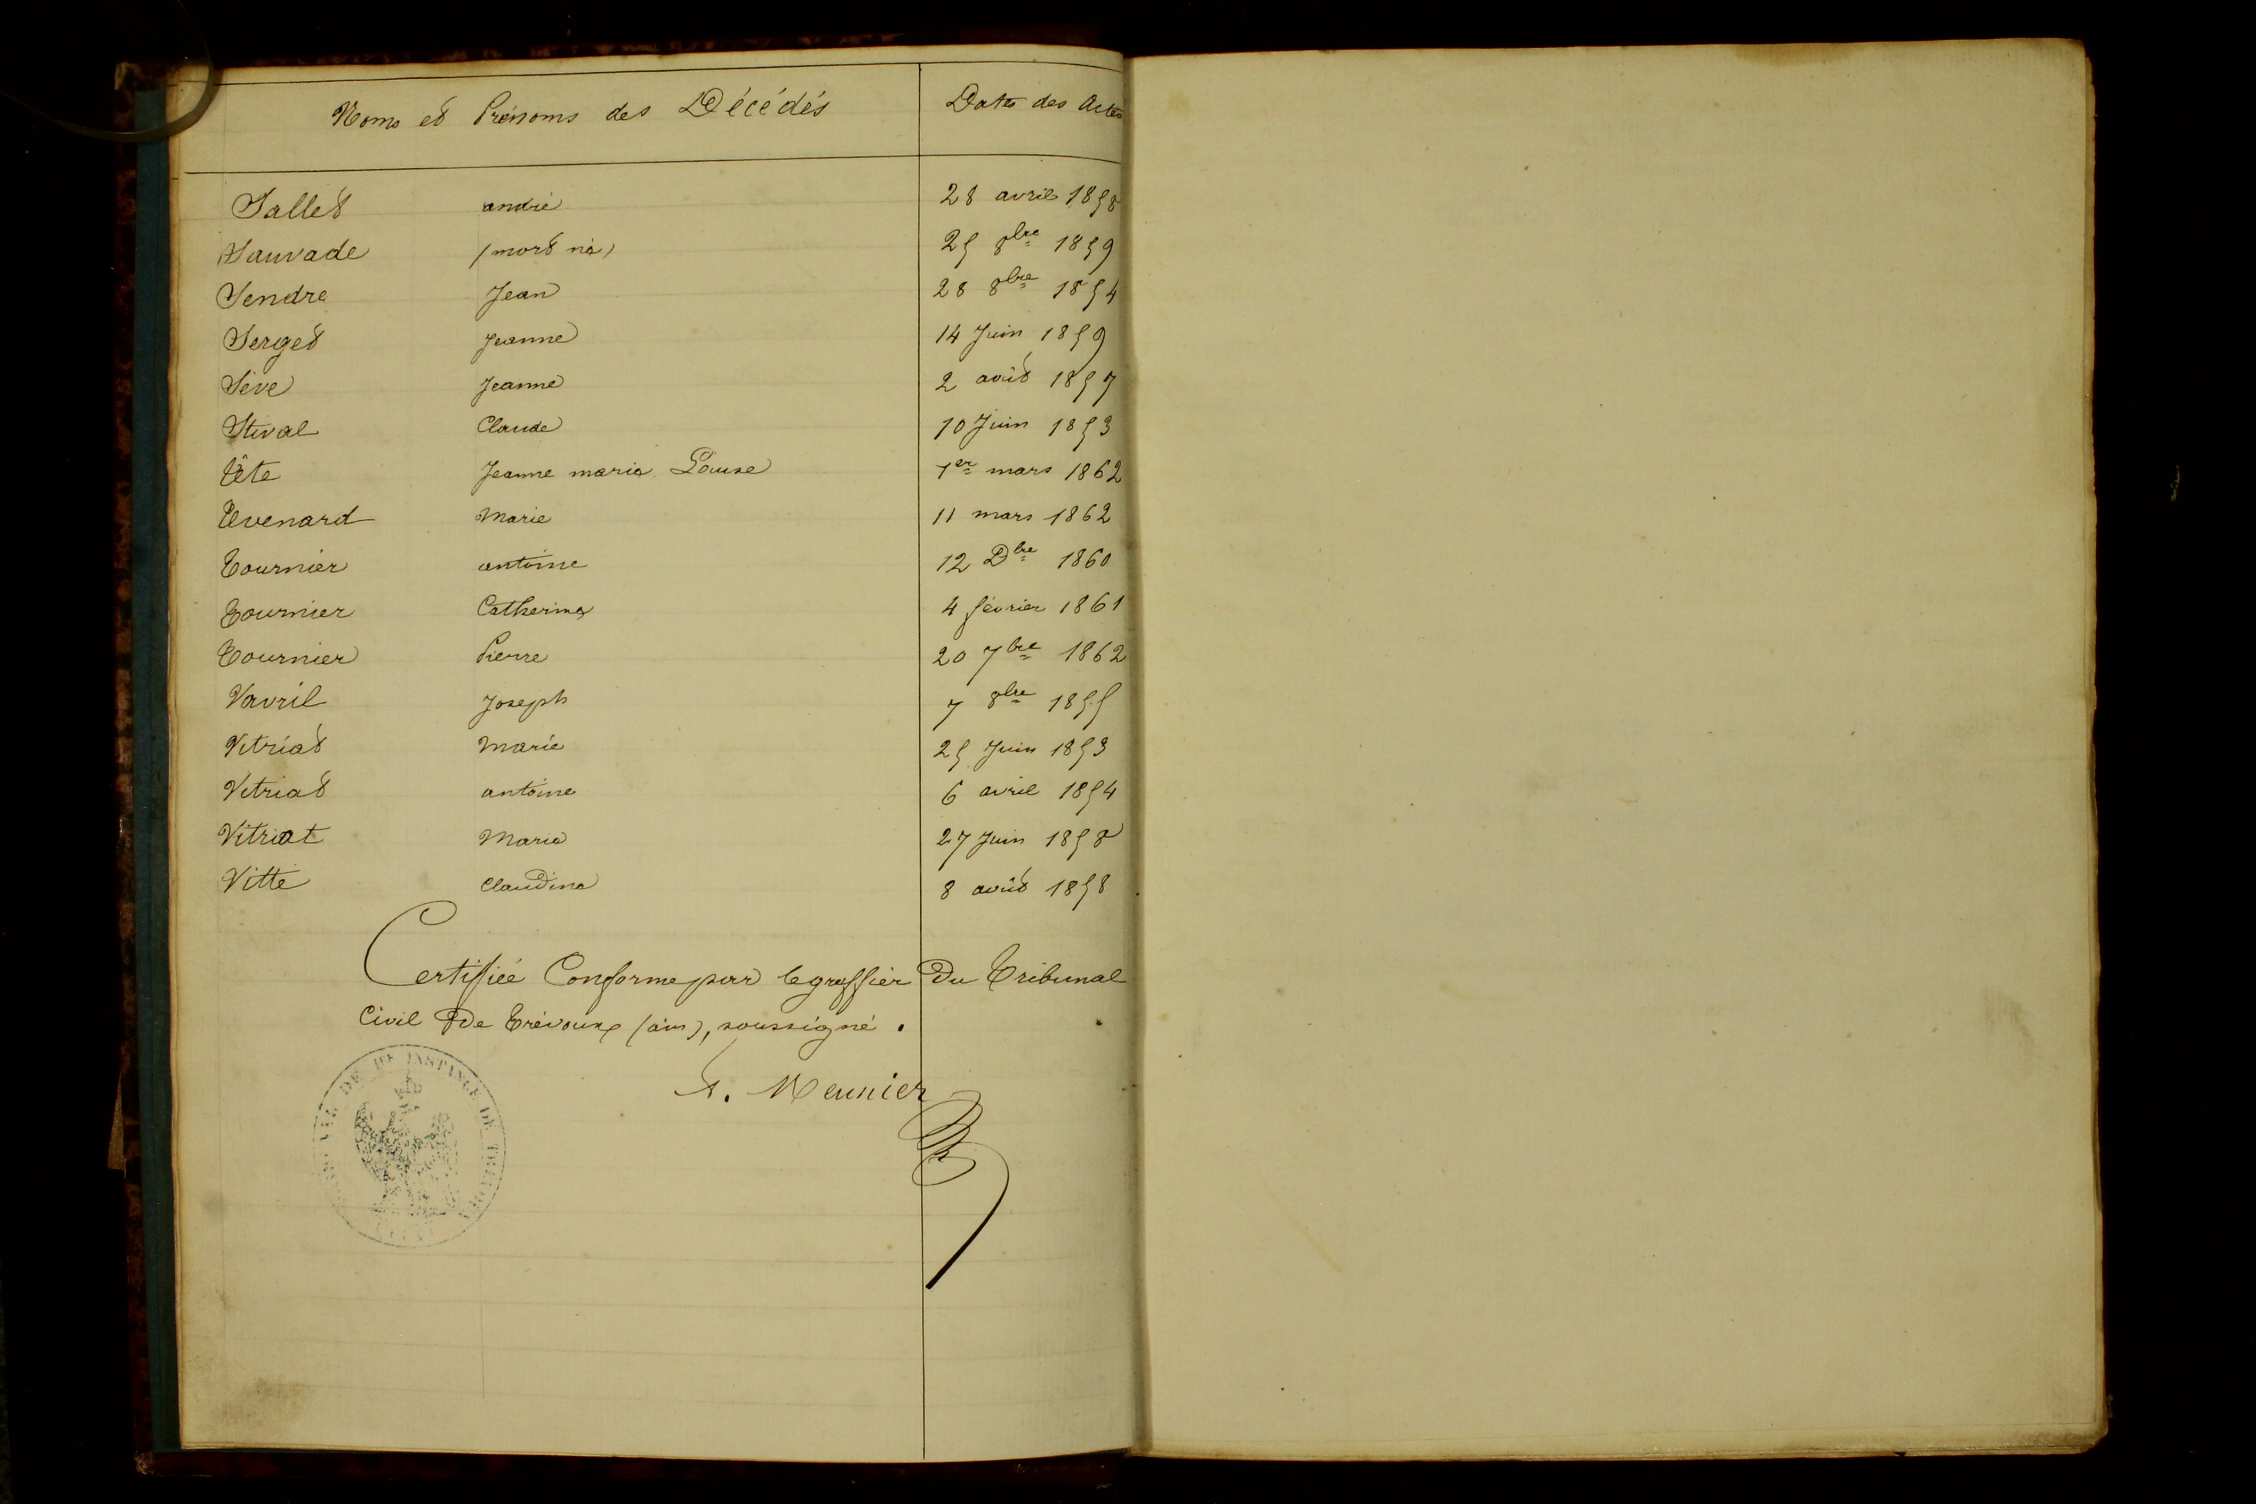 Noms et Prénoms des Décédés Dates des Actes
Sallet andré 28 avril 1858
Sauvade (mort né) 25 8bre 1859
Sendre Jean 28 8bre 1854
Serget Jeanne 14 Juin 1859
Sève Jeanne 2 août 1857
Stival Claude 10 Juin 1853
Tête Jeanne marie Louise 1er mars 1862
Thvenard Marie 11 mars 1862
Tournier antoine 12 Dbre 1860
Tournier Catherine 4 février 1861
Tournier Pierre 20 7bre 1862
Vavril Joseph 7 8bre 1855
Vitriat Marie 25 Juin 1853
Vitriat antoine 6 avril 1854
Vitriat Marie 27 Juin 1858
Vitte Claudine 8 août 1858
Certifiée Conforme par le greffier Du Tribunal
Civil De Trévoux (ain), soussigné.
Meunier
DE 1RE INSTANCE DE TRÉVOUX